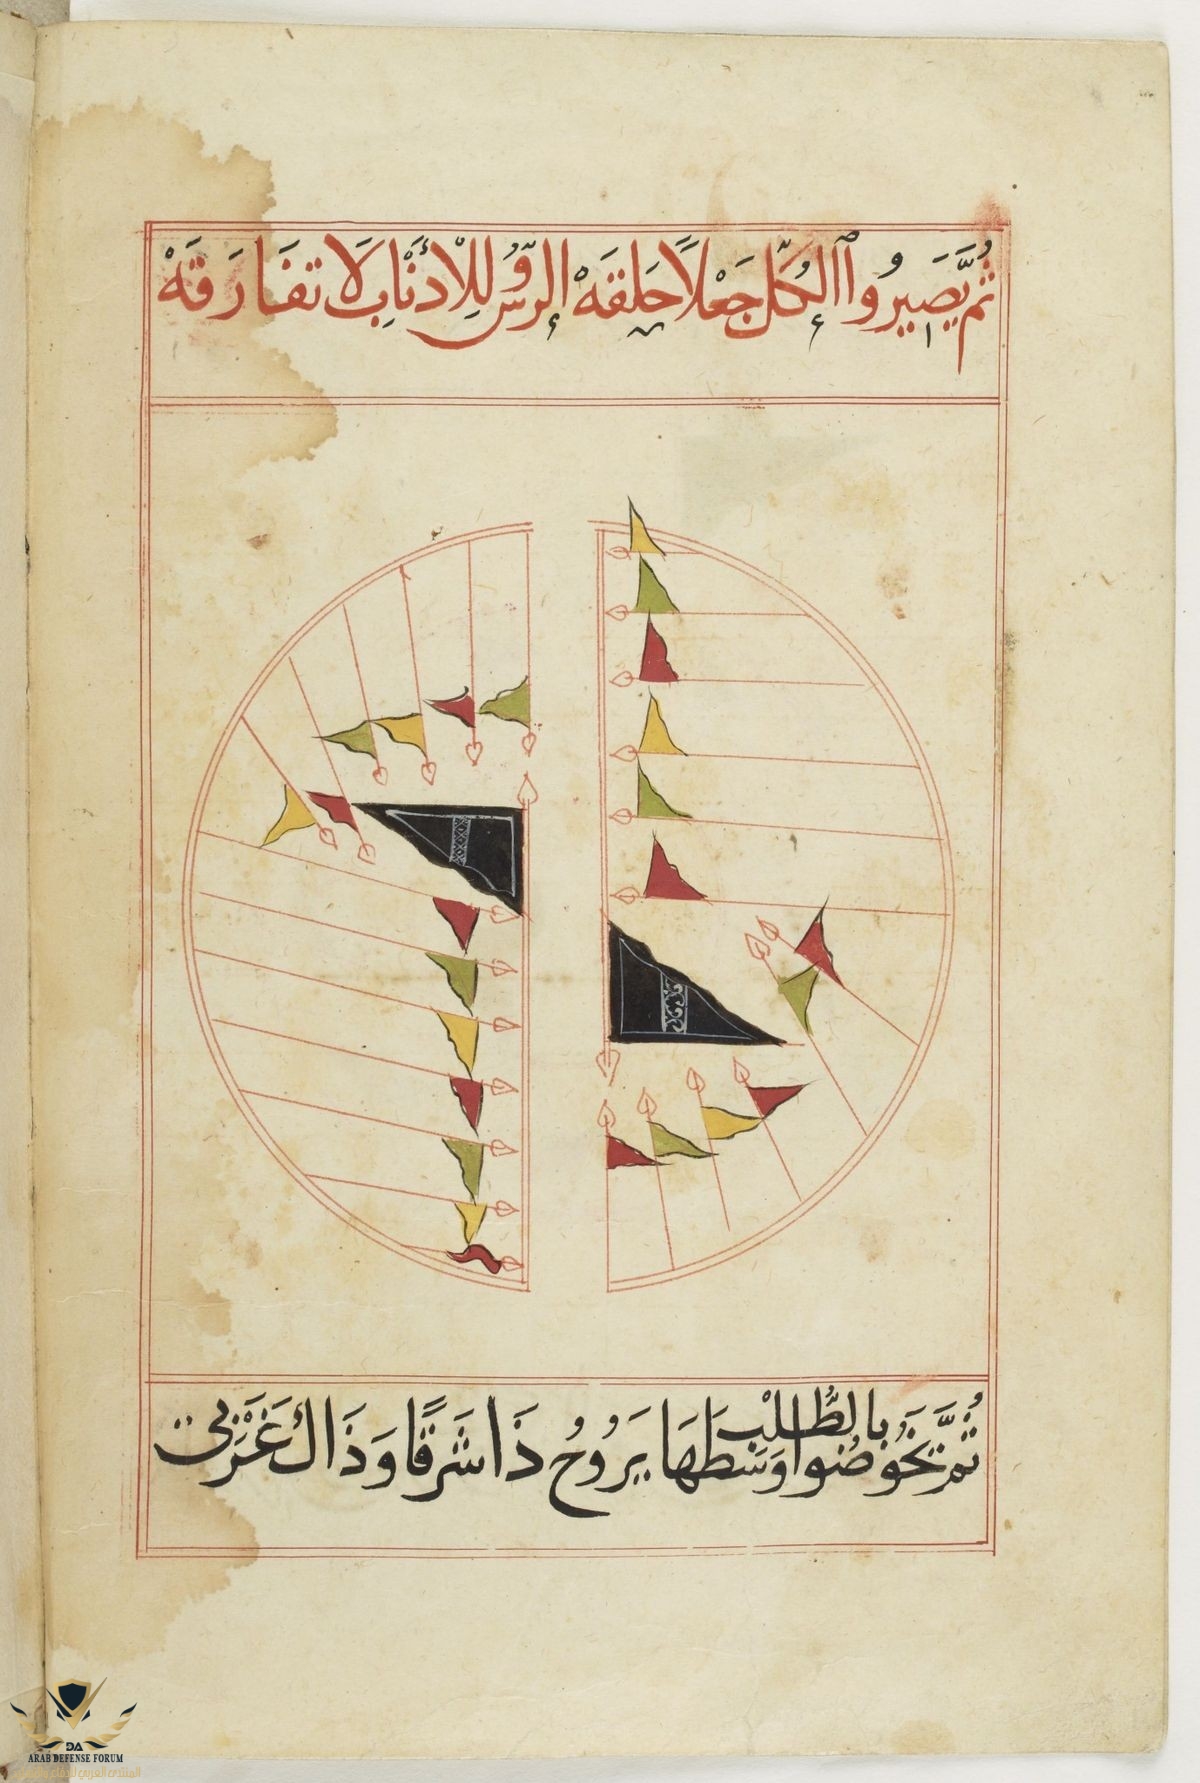 ثُمَّ يَصِيرُوا الكُلّ جَعْلاً حَلقَهْ الرّوُس لِلْأَذْنَابِ لَا تفَارَقَهْ
ثُمَّ تَخُوضُوا بالطُّلْب وَسَطهَا يَرُوحُ ذَا شَرقًا وَذَاكَ غَرْبِي
ARAB DEFENSE FORUM